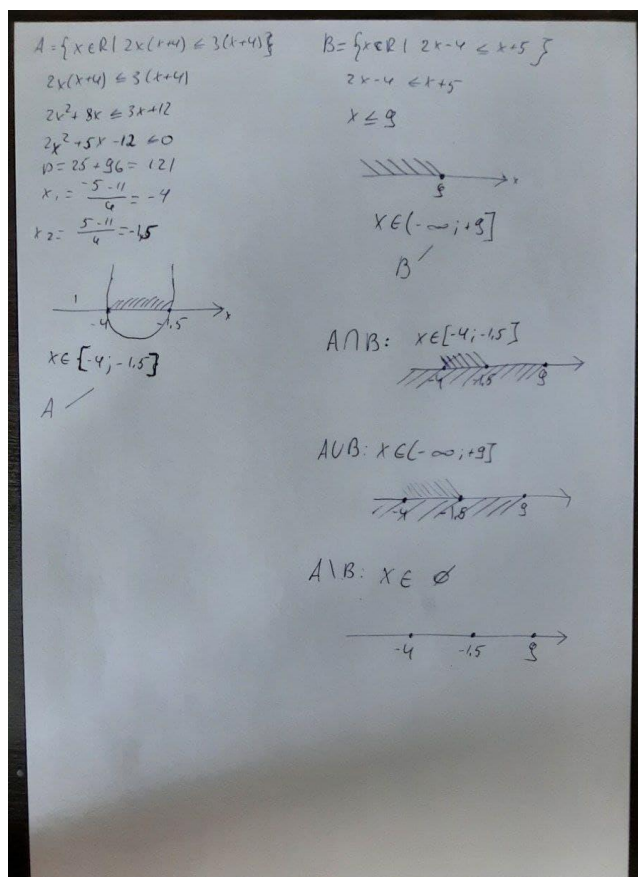 A = {x∈R | 2x(x+4) ≤ 3(x+4)}
2x(x+4) ≤ 3(x+4)
2x² + 8x ≤ 3x+12
2x² + 5x - 12 ≤ 0
D = 25 + 96 = 121
x₁ = (-5 - 11)/4 = -4
x₂ = (5 - 11)/4 = -1,5
-4 -1.5 x
x ∈ [-4; -1.5]
A
B = {x∈R | 2x-4 ≤ x+5}
2x-4 ≤ x+5
x ≤ 9
9 x
x ∈ (-∞; +9]
B
A∩B: x∈[-4; -1.5]
-4 -1.5 9
A∪B: x∈(-∞; +9]
-4 -1.5 9
A\B: x∈ ∅
-4 -1.5 9